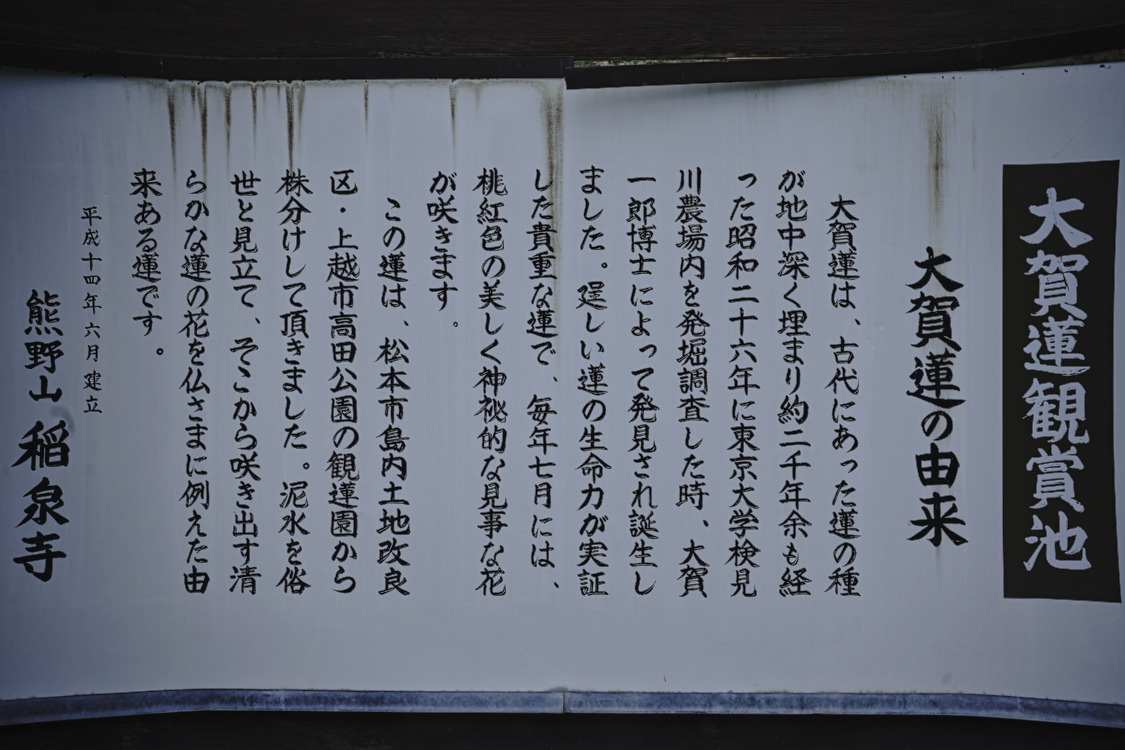 大賀蓮観賞池
大賀蓮の由来
大賀蓮は、古代にあった蓮の種
が地中深く埋まり約二千年余も経
った昭和二十六年に東京大学検見
川農場内を発堀調査した時、大賀
一郎博士によって発見され誕生し
ました。逞しい蓮の生命力が実証
した貴重な蓮で、毎年七月には、
桃紅色の美しく神秘的な見事な花
が咲きます。
この蓮は、松本市島内土地改良
区・上越市高田公園の観蓮園から
株分けして頂きました。泥水を俗
世と見立て、そこから咲き出す清
らかな蓮の花を仏さまに例えた由
来ある蓮です。
平成十四年六月建立
熊野山 稲泉寺